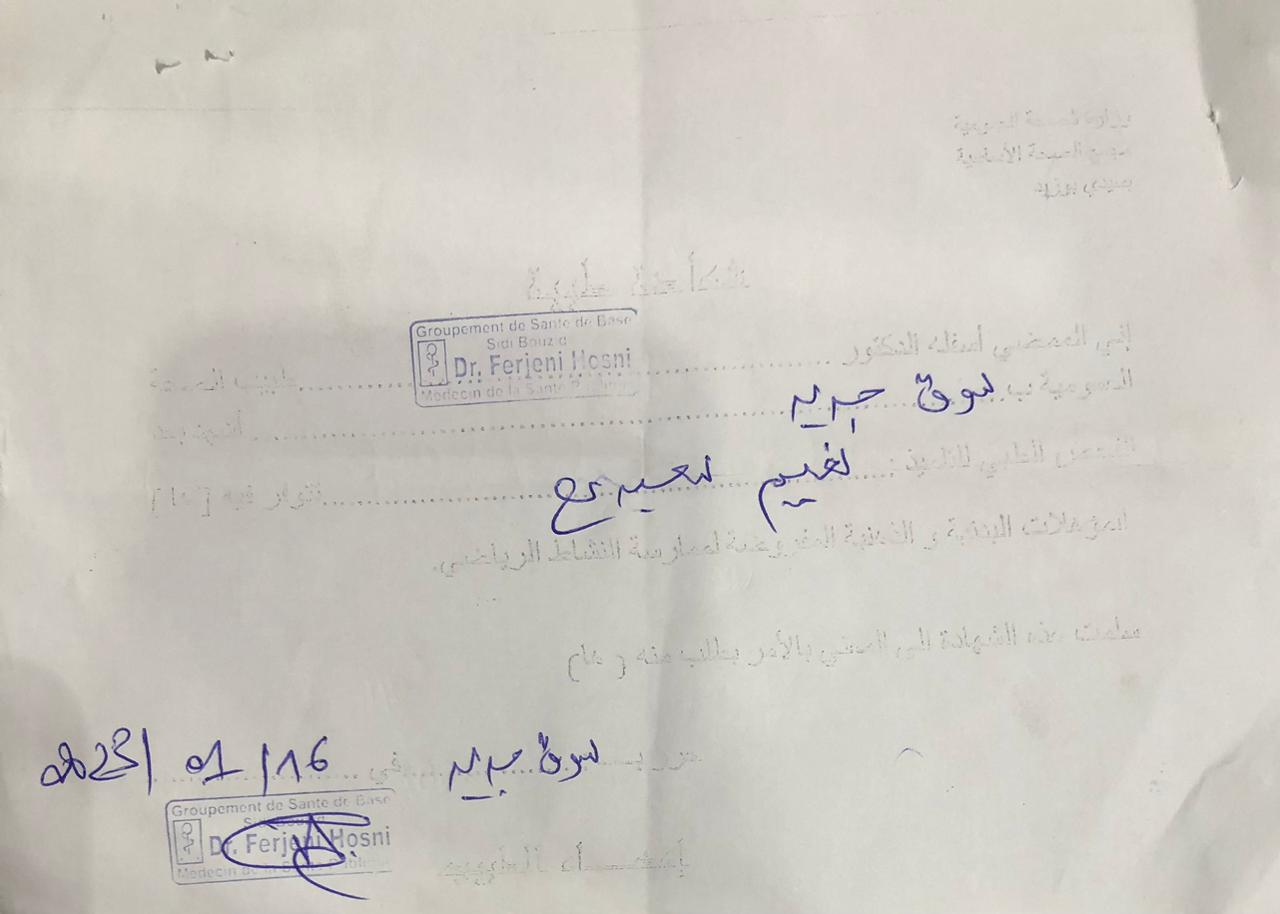 وزارة الصحة العمومية
مجمع الصحة الأساسية
بسيدي بوزيد
شهادة طبية
إني الممضي أسفله الدكتور ........ طبيب الصحة
Groupement de Santé de Base
Sidi Bouzid
Dr. Ferjeni Hosni
Médecin de la Santé Publique
العمومية ب سوق جديد ........ أشهد بعد
الفحص الطبي للتلميذ : ........ تتوفر فيه (ها)
المؤهلات البدنية و الذهنية المفروضة لممارسة النشاط الرياضي.
سلمت هذه الشهادة إلى المعني بالأمر بطلب منه (ها)
حرر بـ سوق جديد في 16/01/2023
إمضاء الطبيب
Groupement de Santé de Base
Sidi Bouzid
Dr. Ferjeni Hosni
Médecin de la Santé Publique